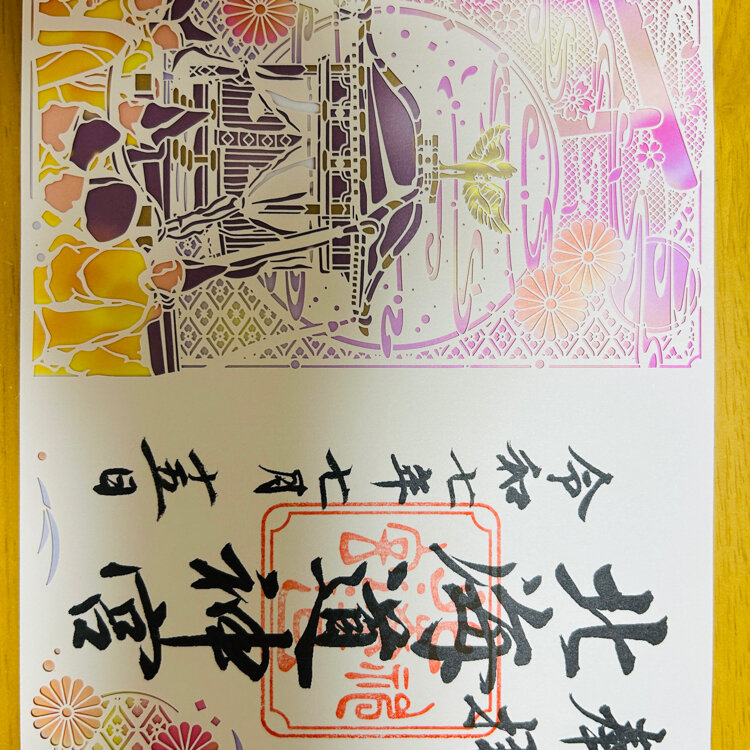 奉拝
北海道神宮
令和七年七月十五日